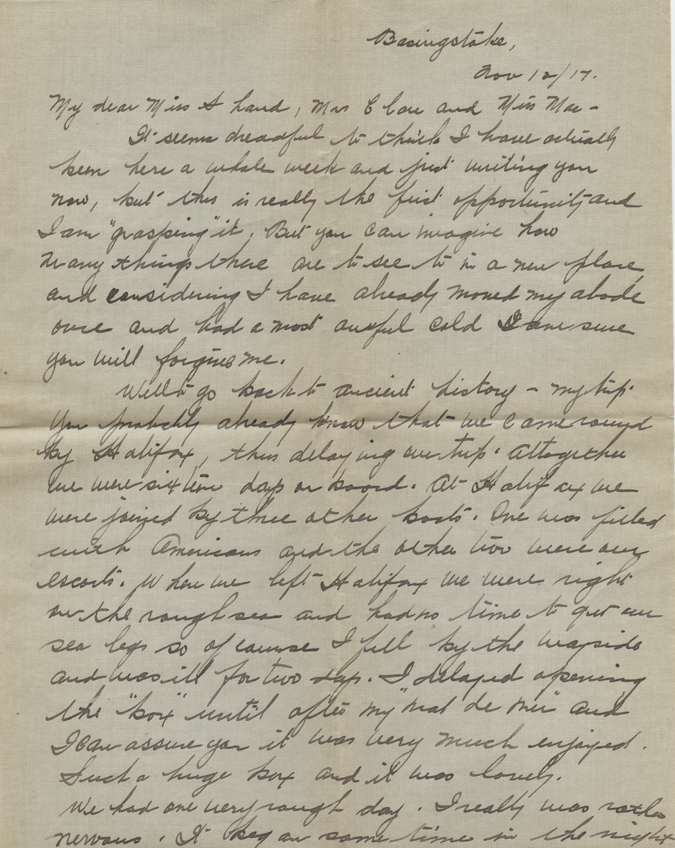 Basingstoke,
Nov 12/17.
My dear Miss Shand, Mrs and Miss Mac -
It seems dreadful to think I have actually
been here a whole week and just writing you
now, but this is really the first opportunity and
I am "grasping" it. But you can imagine how
many things there are to see to in a new place,
and considering I have already moved my abode
once and had a most awful cold I am sure
you will forgive me.
Well to go back to ancient history - my trip.
You probably already know that we came round
by Halifax, thus delaying our trip. Altogether
we were sixteen days on board. At Halifax we
were joined by three other boats. One was filled
with Americans and the other two were our
escorts. When we left Halifax we were right
in the rough sea and had no time to get our
sea legs so of course I fell by the wayside
and was ill for two days. I delayed opening
the "box" until after my "mal de mer" and
I can assure you it was very much enjoyed.
Such a huge box and it was lovely.
We had one very rough day. I really was rather
nervous. It began some time in the night